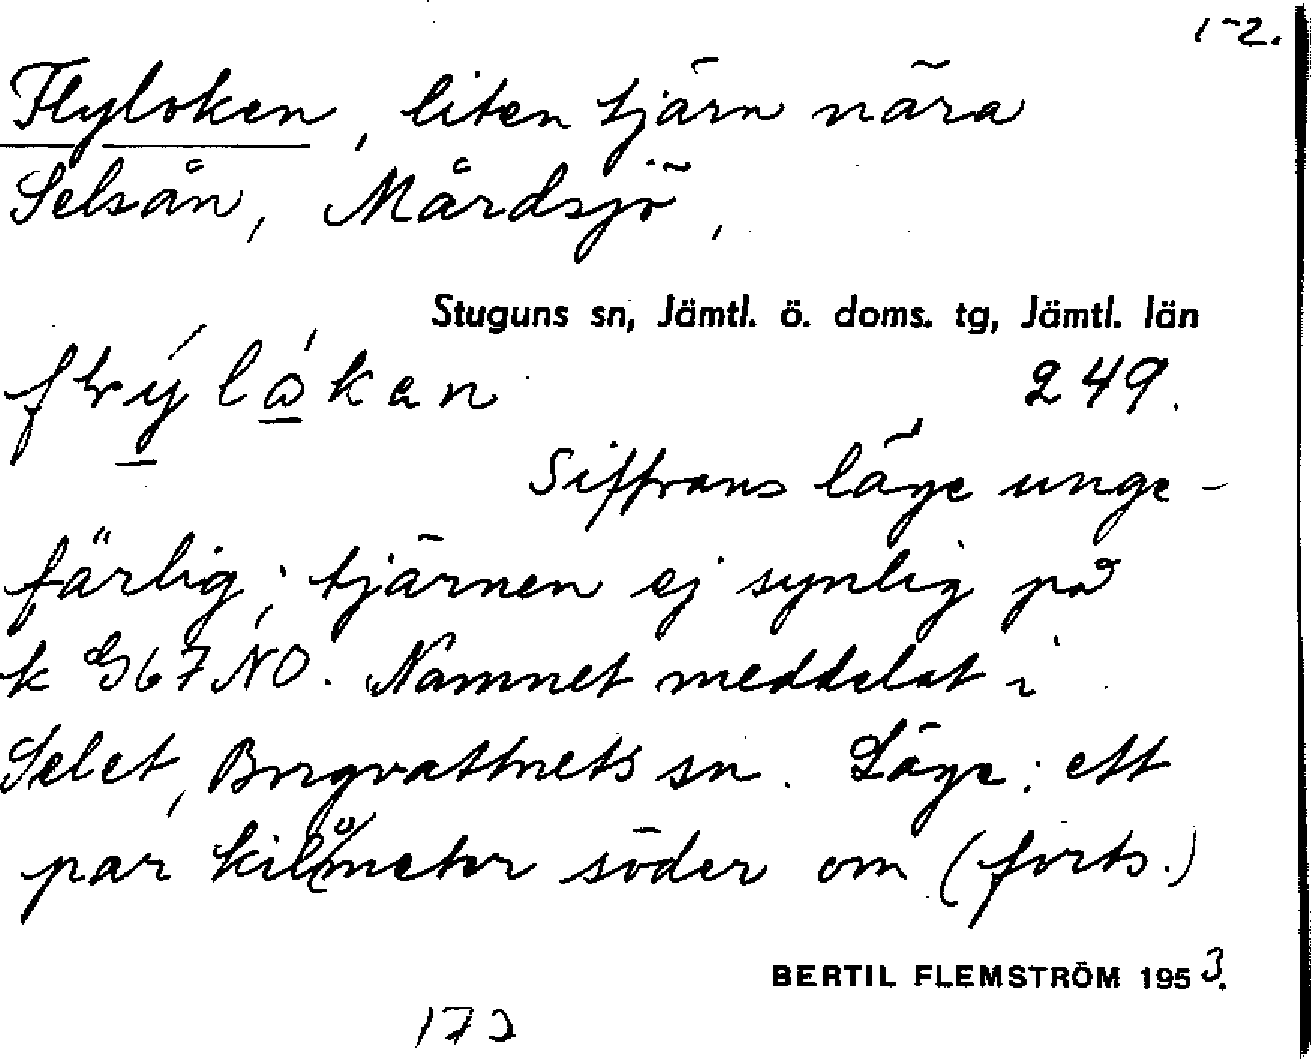 1-2.
Flyloken, liten tjärn nära
Selsån, Mårdsjö,
Stuguns sn, Jämtl. ö. doms. tg, Jämtl. län
249.
Siffrans läge unge-
färlig; tjärnen ej synlig på
k G67NO. Namnet meddelat i
Selet, Borgvattnets sn. Läge: ett
par kilometer söder om (forts.)
BERTIL FLEMSTRÖM 1953.